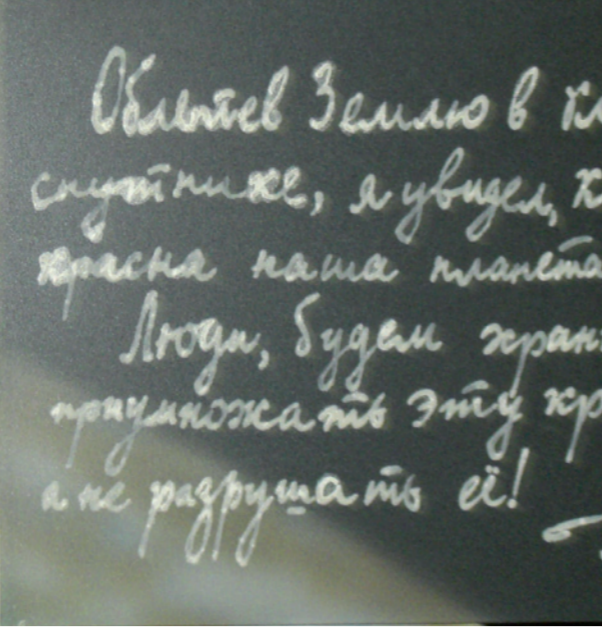 Облетев Землю в
спутнике, я увидел,
красна наша планета
Люди, будем хран
приумножать эту кр
а не разрушать её!